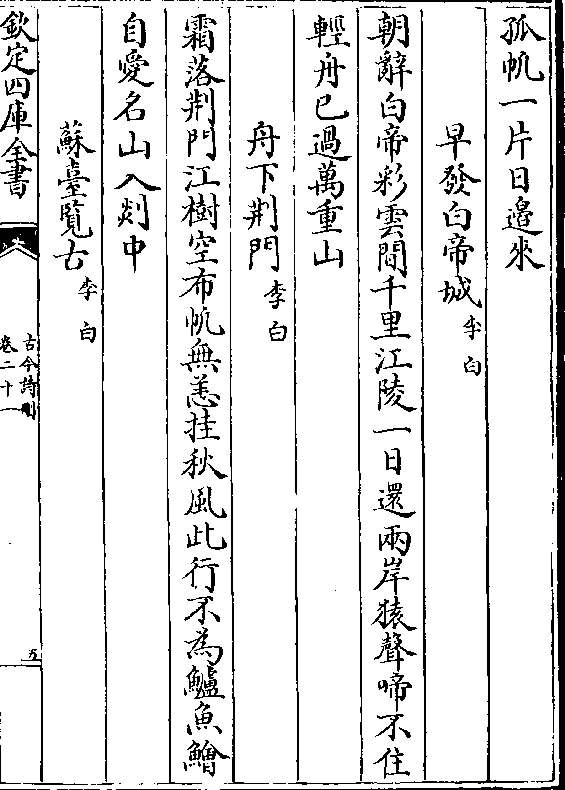 孤帆一片日邉來
早發白帝城李白
朝辭白帝彩雲間千里江陵一日還兩岸猿聲啼不住
輕舟已過萬重山
舟下荆門李白
霜落荆門江樹空布帆無恙挂秋風此行不為鱸魚鱠
自愛名山入剡中
蘇臺覽古李白
欽定四庫全書
古今詩刪
卷二十一
五